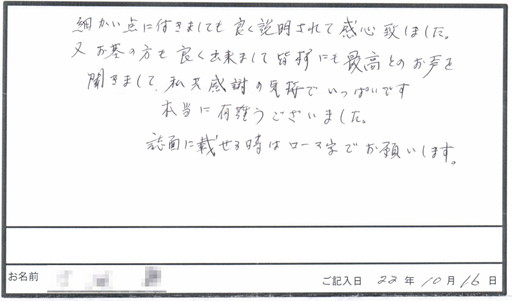 細かい点に付きましても良く説明されて感心致しました。
又お墓の方も良く出来まして皆様にも最高とのお声を
聞きまして、私共感謝の気持でいっぱいです
本当に有難うございました。
誌面に載せる時はローマ字でお願いします。
お名前
ご記入日 22年10月16日